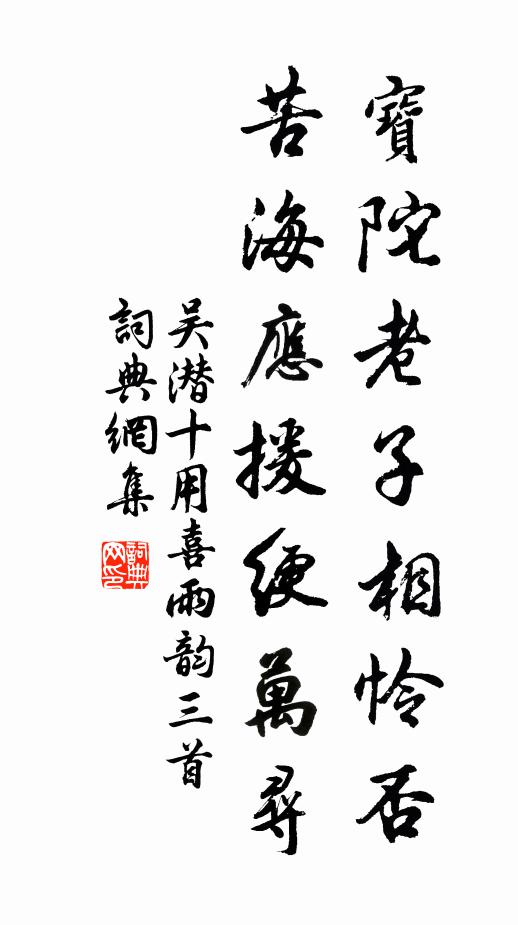 寶陀老子相怜否
苦海應援綆萬尋
吴潜十用喜雨韵三首
詞典網集
詞典網印